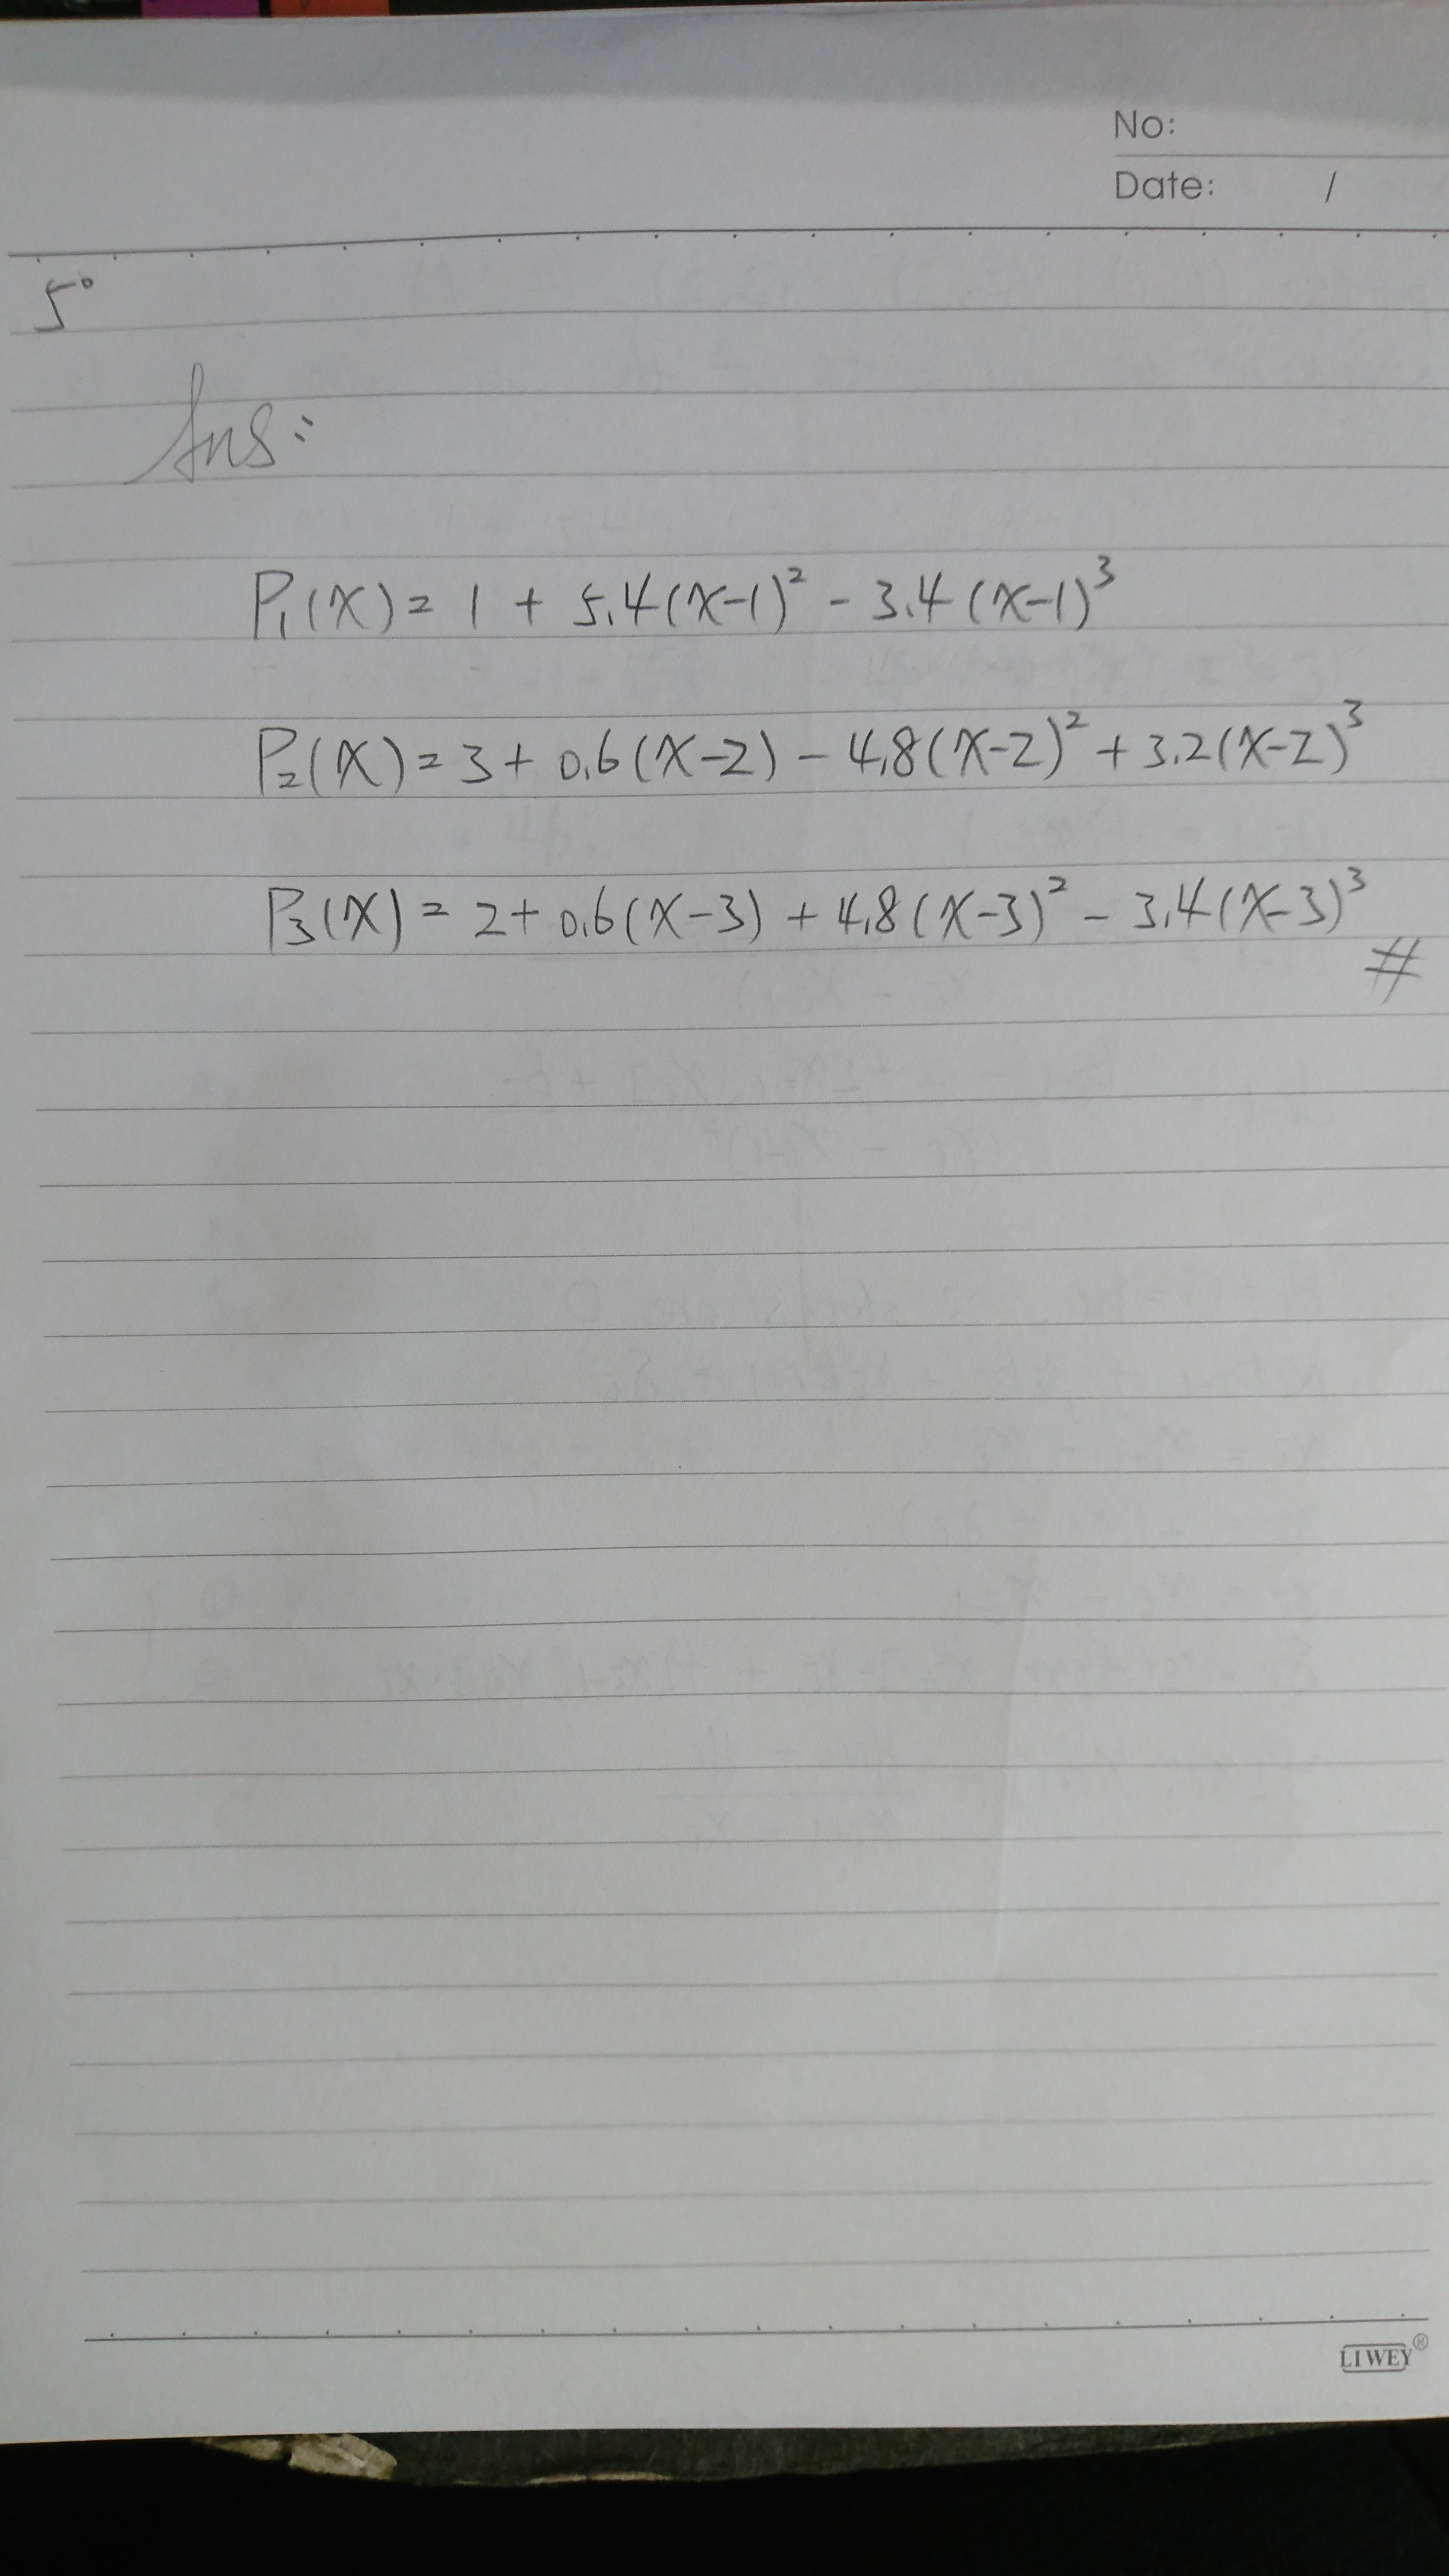 No:
Date: /
5°
Ans:
P₁(x) = 1 + 5.4(x-1)² - 3.4(x-1)³
P₂(x) = 3 + 0.6(x-2) - 4.8(x-2)² + 3.2(x-2)³
P₃(x) = 2 + 0.6(x-3) + 4.8(x-3)² - 3.4(x-3)³
#
LIWEY®